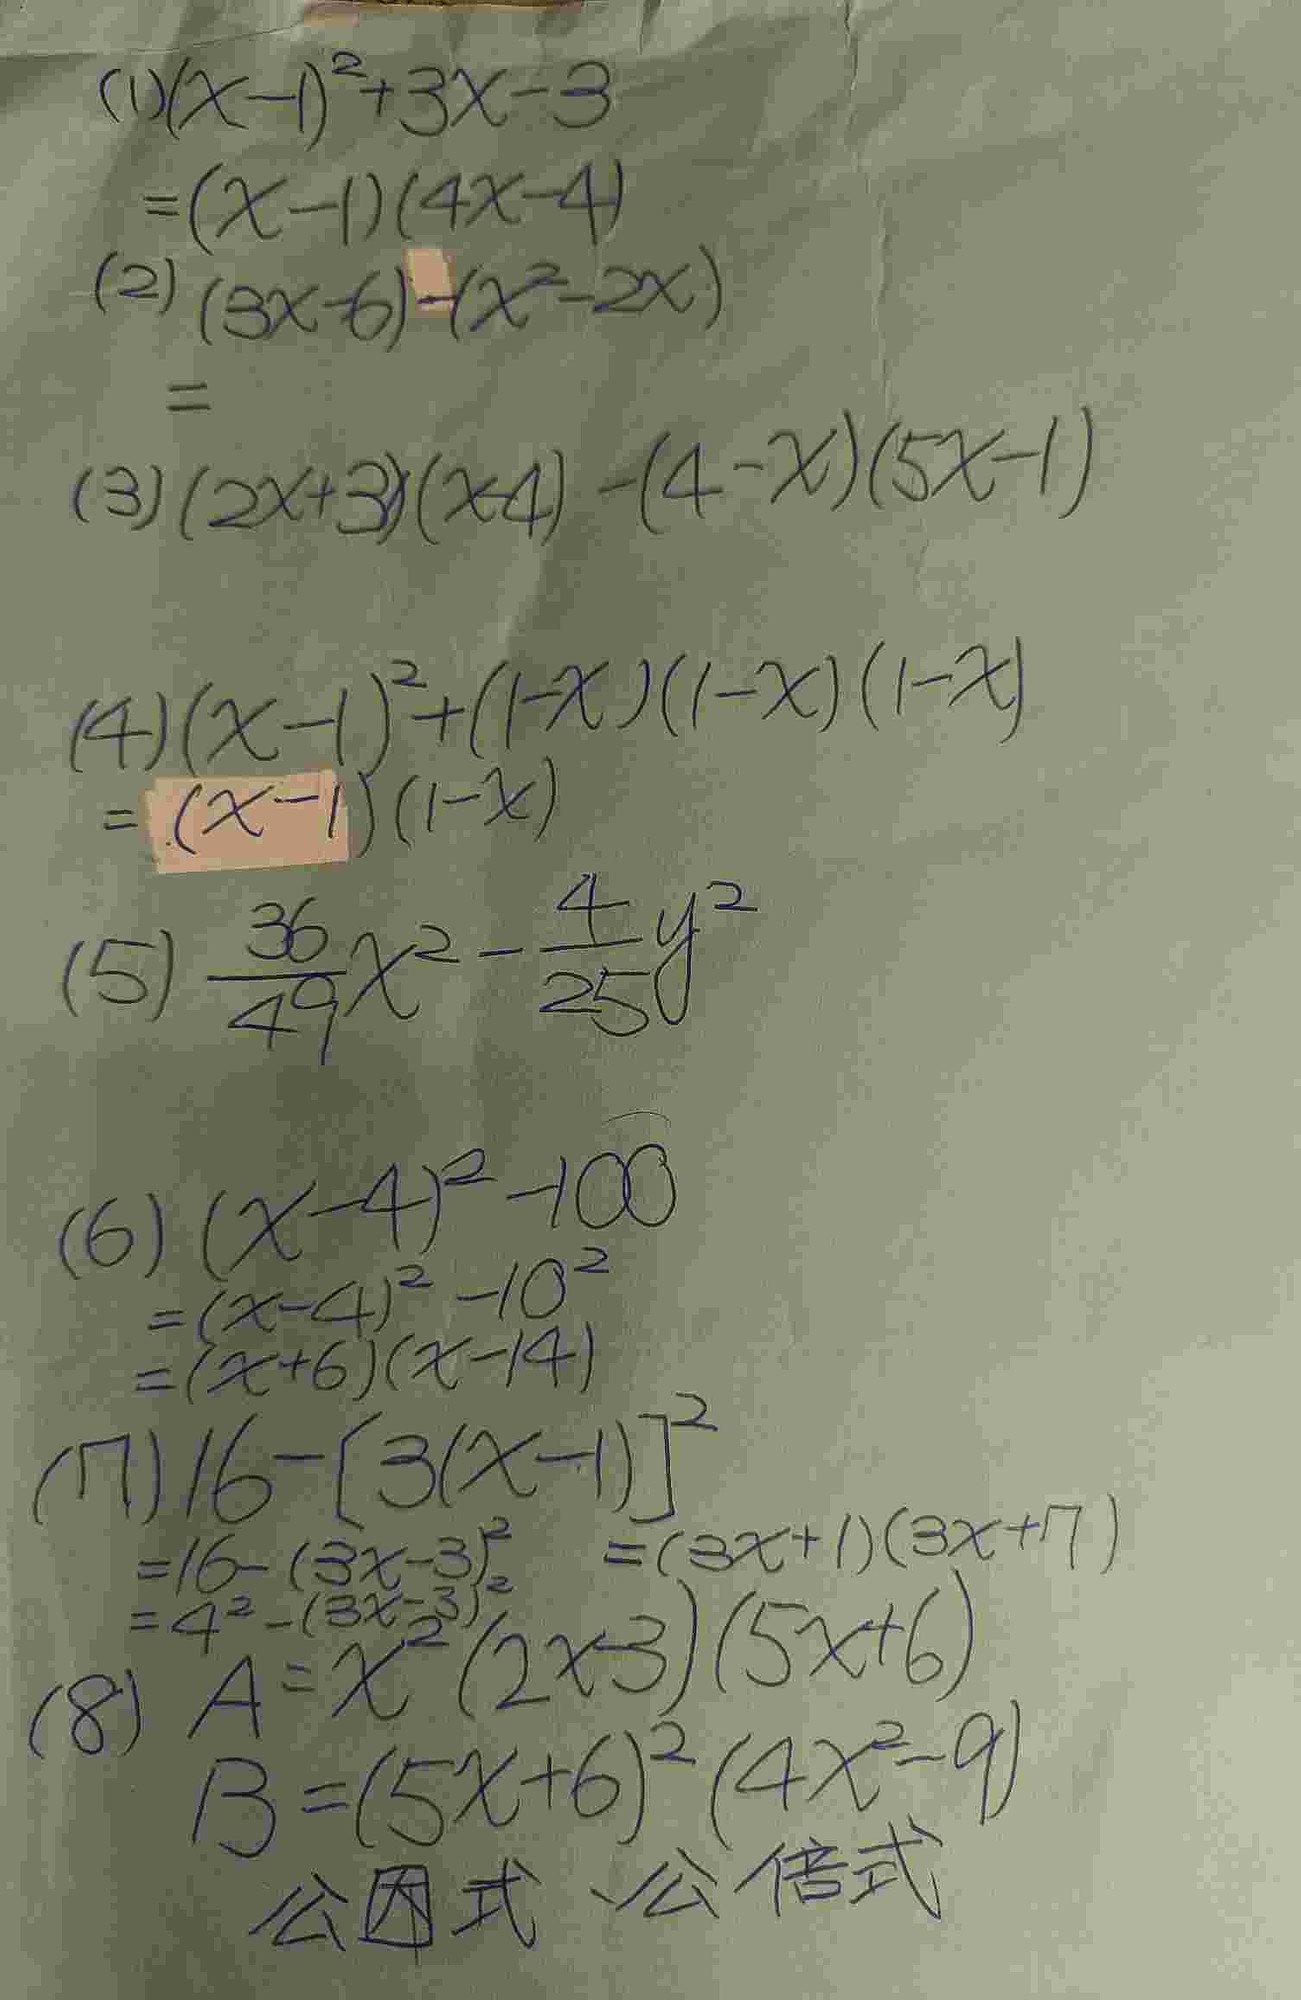 (1)(x-1)²+3x-3
=(x-1)(4x-4)
(2) (3x-6)-(x²-2x)
=
(3)(2x+3)(x-4)-(4-x)(5x-1)
(4)(x-1)²+(1-x)(1-x)(1-x)
=(x-1)(1-x)
(5) 36/49 x² - 4/25 y²
(6) (x-4)²-100
=(x-4)²-10²
=(x+6)(x-14)
(7)16-[3(x-1)]²
=16-(3x-3)² =(3x+1)(3x+7)
=4²-(3x-3)²
(8) A=x²(2x-3)(5x+6)
B=(5x+6)²(4x²-9)
公因式、公倍式